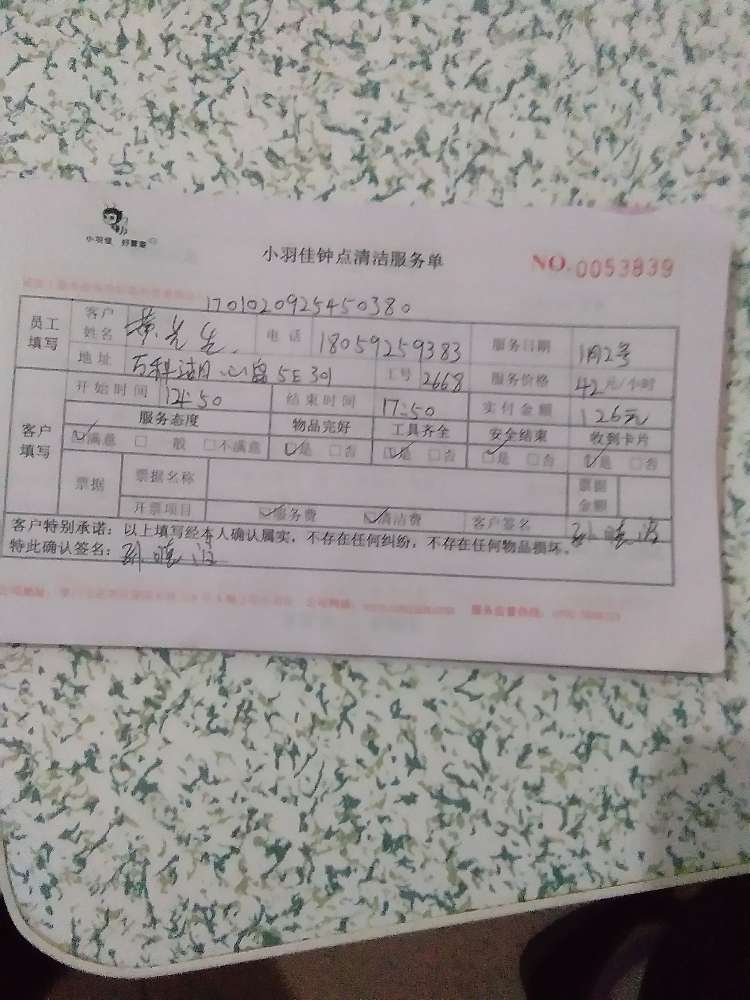 小羽佳 好管家
小羽佳钟点清洁服务单 NO. 0053839
1701020925450380
员工填写 客户姓名 黄先生 电话 18059259383 服务日期 1月2号
地址 5E301 工号 2668 服务价格 42元/小时
客户填写 开始时间 14:50 结束时间 17:50 实付金额 126元
服务态度 物品完好 工具齐全 安全结束 收到卡片
☑满意 □一般 □不满意 ☑是 □否 ☑是 □否 ☑是 □否 ☑是 □否
票据 票据名称 票据金额
开票项目 ☑服务费 ☑清洁费 客户签名 孙晓
客户特别承诺：以上填写经本人确认属实，不存在任何纠纷，不存在任何物品损坏。
特此确认签名：孙晓